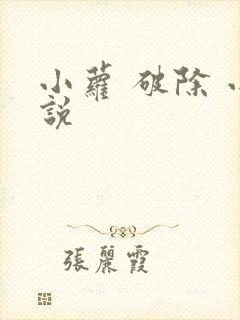 小蘿 破除 小
説
張麗霞